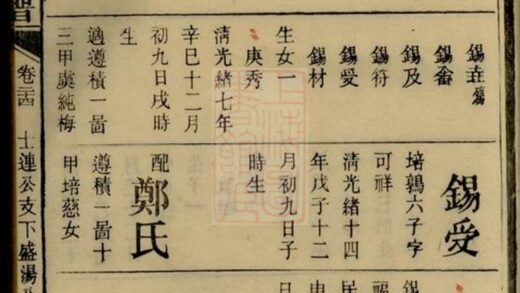 錫
錫畬
錫及
錫符
錫愛
錫材
生女一
庚秀
淸光緖七年
辛巳十二月
初九日戌時
生
適遵積一啚
三甲虞純梅
錫受
培鶉六子字
可祥
淸光緖十四
年戊子十二
月初九日子
時生
配
鄭氏
遵積一啚十
甲培慈女
卷
士連公支下盛湯